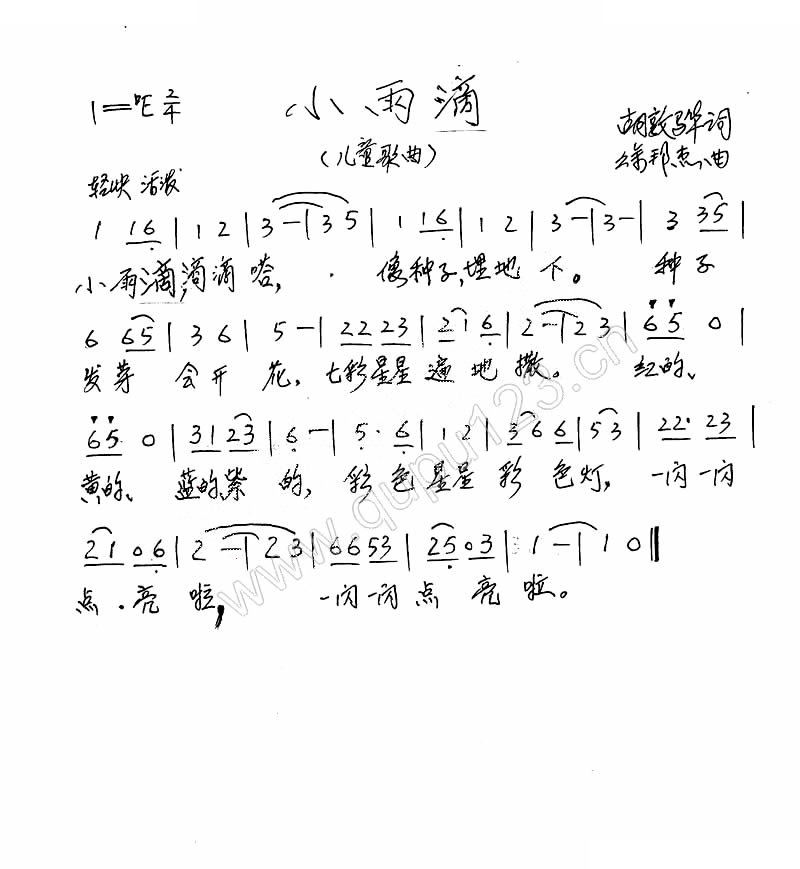 1=♭E 2/4 小雨滴
(儿童歌曲)
胡敦骅词
曲
轻快 活泼
1 16 | 1 2 | 3 - | 3 5 | 1 16 | 1 2 | 3 - | 3 - | 3 35 |
小雨滴,滴滴嗒, 像种子,埋地下。 种子
6 65 | 3 6 | 5 - | 22 23 | 21 6 | 2 - | 2 3 | 65 0 |
发芽 会开 花, 七彩星星遍地撒。 红的、
65 0 | 31 23 | 6 - | 5· 6 | 1 2 | 3 6 6 | 5 3 | 22· 23 |
黄的、 蓝的紫的, 彩色星星彩色灯, 一闪一闪
21 06 | 2 - | 2 3 | 66 53 | 25 03 | 1 - | 1 0 ‖
点·亮啦, 一闪一闪点 亮啦。
www.qupu123.cn